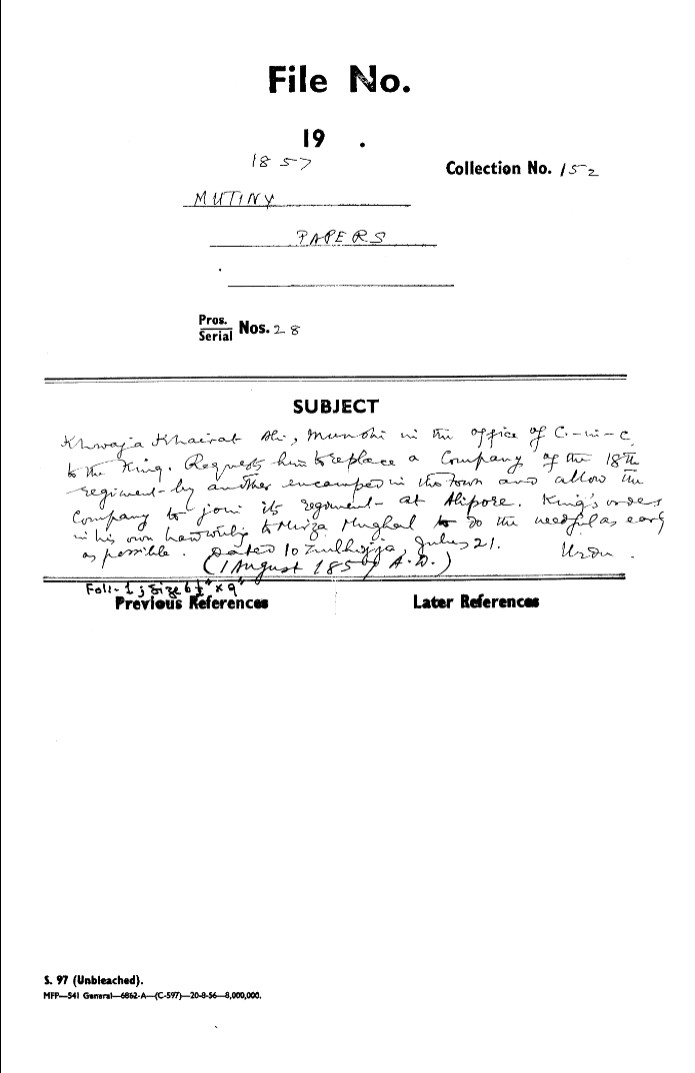 File No.
19 .
1857
Collection No. 152
MUTINY
PAPERS
Pros.
Serial Nos. 28
SUBJECT
Khwaja Khairat Ali, Munshi in the office of C.-in-C.
to the King. Requests him to replace a Company of the 18th
regiment by another encamped in the town and allow the
Company to join its regiment at Alipore. King's orders
in his own handwriting to Mirza Mughal to do the needful as early
as possible. Dated 10 Zulhijja, Julus 21. Urdu.
(1 August 1857 A.D.)
Foll-1; Size 6½" x 9"
Previous References
Later References
S. 97 (Unbleached).
MFP—541 General—6862-A—(C-597)—20-8-56—8,000,000.